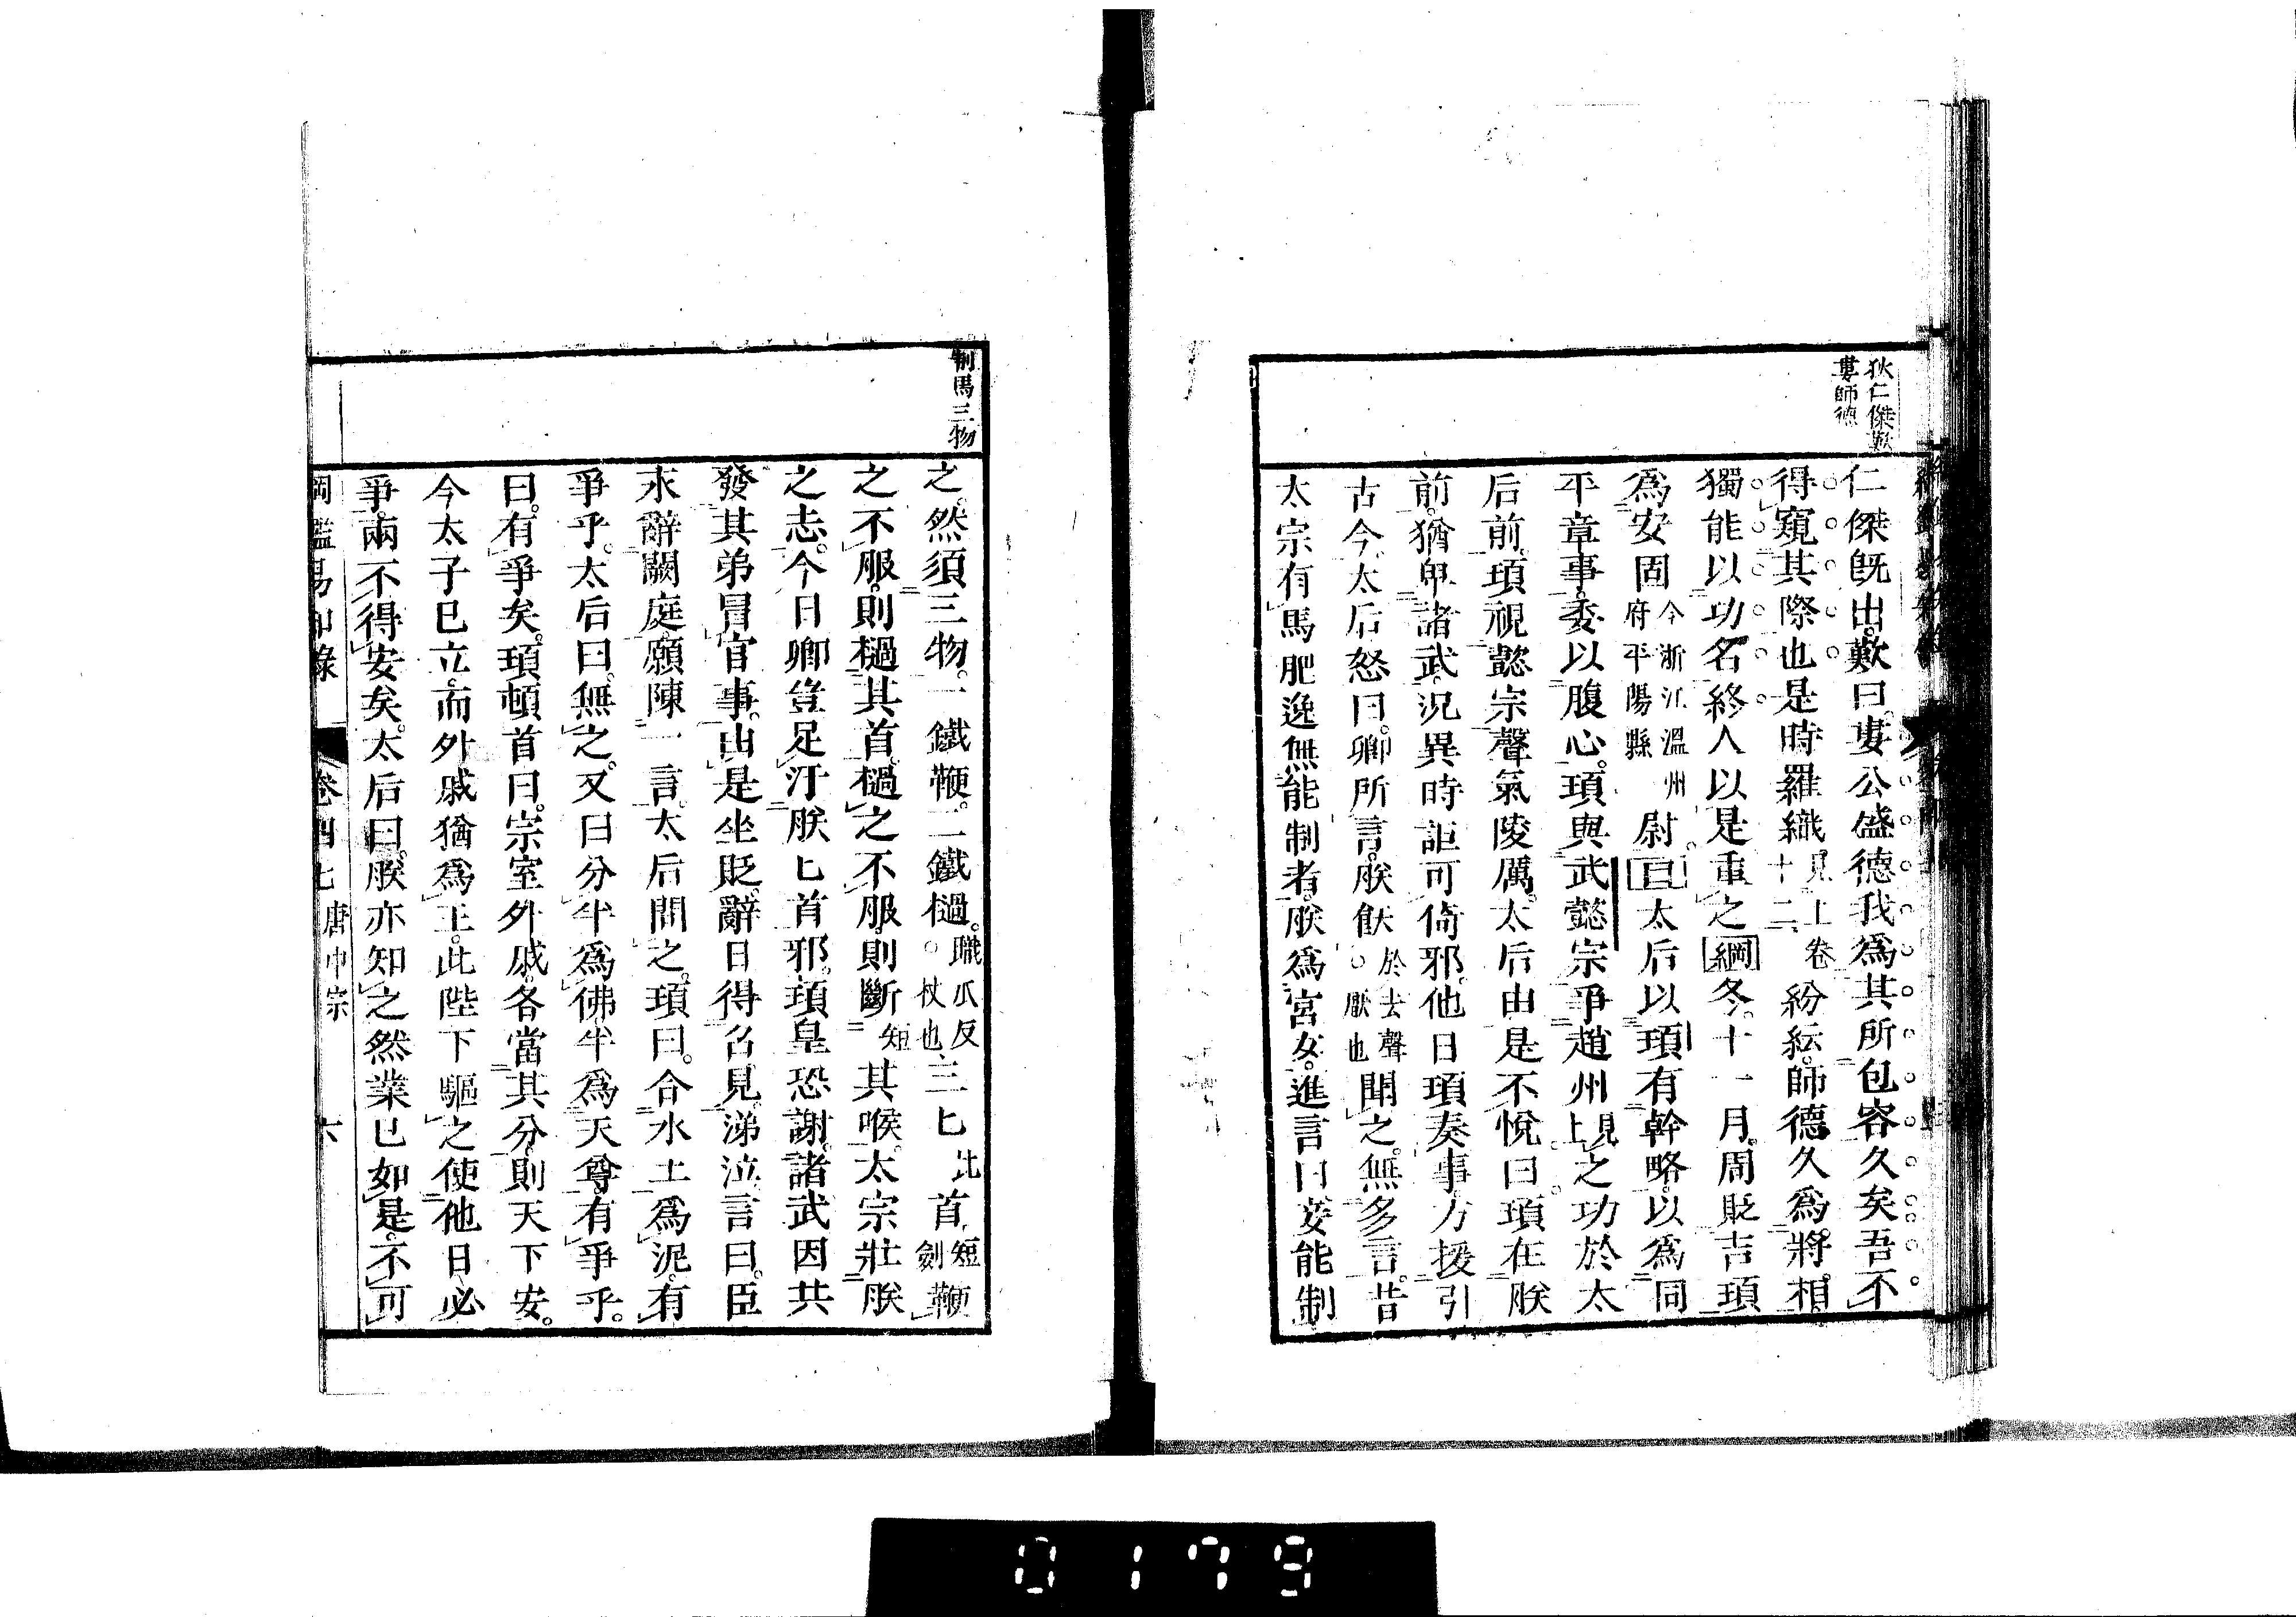 狄仁傑歎
婁師德
仁傑旣出。歎曰。婁公盛德我爲其所包容久矣吾不
得窺其際也是時羅織見上卷十二紛紜。師德久爲將相
獨能以功名終人以是重之綱冬。十一月。周貶吉頊
爲安固今浙江溫州府平陽縣尉。目太后以頊有幹略以爲同
平章事。委以腹心。頊與武懿宗爭趙州見上之功於太
后前。頊視懿宗聲氣陵厲。太后由是不悅。曰。頊在朕
前。猶卑諸武。況異時詎可倚邪。他日頊奏事。方援引
古今。太后怒曰。卿所言。朕飫於去聲。厭也聞之。無多言。昔
太宗有馬肥逸無能制者。朕爲宮女。進言曰妾能制
制馬三物
之。然須三物。一鐵鞭。二鐵檛。職瓜反。杖也三匕比首短劍鞭
之不服。則檛其首。檛之不服。則斷短其喉。太宗壯朕
之志。今日卿豈足汙朕匕首邪。頊皇恐謝。諸武因共
發其弟冒官事。由是坐貶。辭日得召見。涕泣言曰。臣
永辭闕庭。願陳一言。太后問之。頊曰。合水土爲泥。有
爭乎。太后曰。無之。又曰分半爲佛半爲天尊。有爭乎。
曰。有爭矣。頊頓首曰。宗室外戚。各當其分。則天下安。
今太子已立。而外戚猶爲王。此陛下驅之使他日必
爭。兩不得安矣。太后曰。朕亦知之然業已如是。不可
綱鑑易知錄 卷四七 唐中宗 六
0179